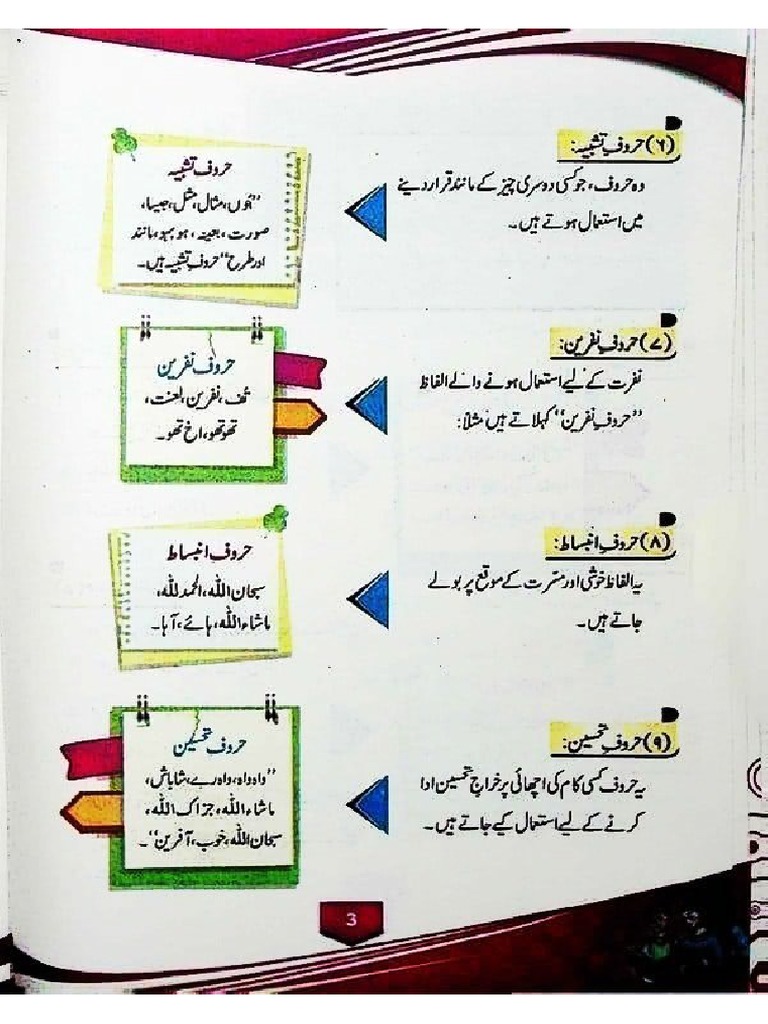 (۶) حروفِ تشبیہ:
وہ حروف، جو کسی دوسری چیز کے مانند قرار دینے
میں استعمال ہوتے ہیں۔
حروف تشبیہ
"جُوں، مثال، مثل، جیسا،
صورت، بعینہٖ، ہوبہو، مانند
اور طرح" حروف تشبیہ ہیں۔
(۷) حروفِ نفرین:
نفرت کے لیے استعمال ہونے والے الفاظ
"حروفِ نفرین" کہلاتے ہیں مثلاً:
حروف نفرین
تُف، نفرین، لعنت،
تھوتھو، اخ تھو۔
(۸) حروفِ انبساط:
یہ الفاظ خوشی اور مسّرت کے موقع پر بولے
جاتے ہیں۔
حروف انبساط
سبحان اللہ، الحمد للہ،
ماشاء اللہ، ہائے، آہا۔
(۹) حروفِ تحسین:
یہ حروف کسی کام کی اچھائی پر خراجِ تحسین ادا
کرنے کے لیے استعمال کیے جاتے ہیں۔
حروف تحسین
"واہ واہ، واہ رے، شاباش،
ماشاء اللہ، جزاک اللہ،
سبحان اللہ، خوب، آفرین"۔
3